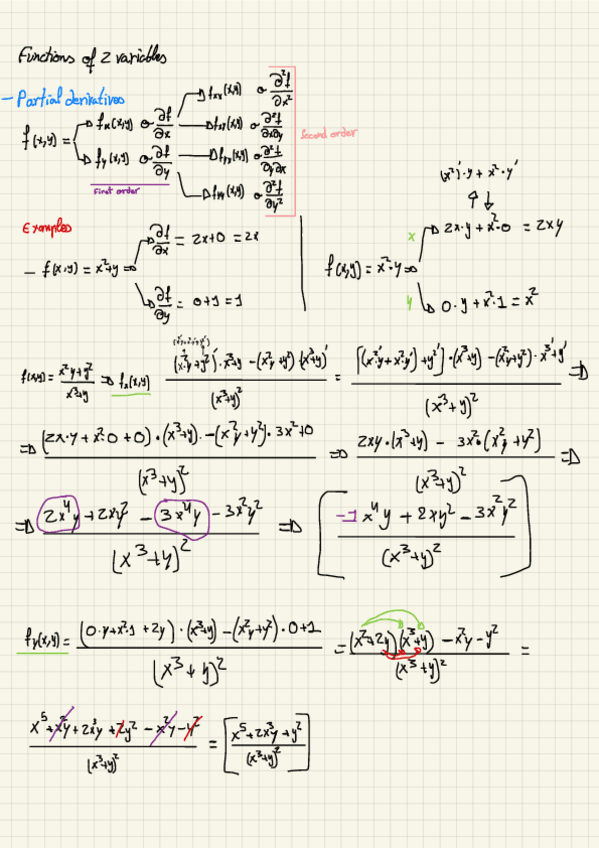 Functions of 2 variables
- Partial derivatives
f(x,y) = fx(x,y) o ∂f/∂x fxx(x,y) o ∂²f/∂x²
fxy(x,y) o ∂²f/∂x∂y
fy(x,y) o ∂f/∂y fyx(x,y) o ∂²f/∂y∂x
fyy(x,y) o ∂²f/∂y²
First order
Second order
Examples
- f(x,y) = x²+y ⇒ ∂f/∂x = 2x+0 = 2x
∂f/∂y = 0+1 = 1
(x²)'·y + x²·y'
f(x,y) = x²·y ⇒ x 2x·y + x²·0 = 2xy
y 0·y + x²·1 = x²
f(x,y) = (x²y+y²)/(x³+y) ⇒ fx(x,y) ((x²·y+y²)'·x³+y - (x²y+y²)·(x³+y)')/(x³+y)² = ([(x²'·y+x²·y')+y²']·(x³+y) - (x²y+y²)·x³'+y')/(x³+y)² ⇒
⇒ ((2x·y + x²·0 + 0)·(x³+y) - (x²y+y²)·3x²+0)/(x³+y)² ⇒ (2xy·(x³+y) - 3x²·(x²y+y²))/(x³+y)² ⇒
⇒ (2x⁴y + 2xy² - 3x⁴y - 3x²y²)/(x³+y)² ⇒ [(-1x⁴y + 2xy² - 3x²y²)/(x³+y)²]
fy(x,y) = ((0·y+x²·1 + 2y)·(x³+y) - (x²y+y²)·0+1)/(x³+y)² = ((x²+2y)(x³+y) - x²y - y²)/(x³+y)² =
(x⁵+x²y + 2x³y + 2y² - x²y - y²)/(x³+y)² = [(x⁵+2x³y+y²)/(x³+y)²]